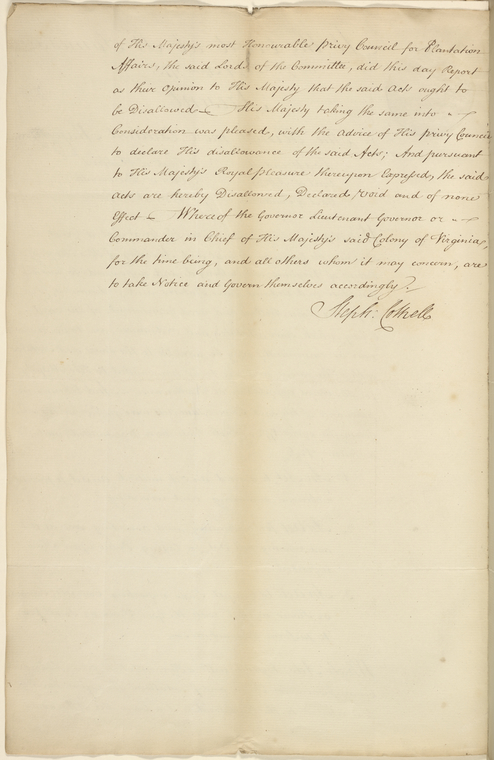 of His Majesty's most Honourable privy Council for Plantation
Affairs, the said Lords of the Committee, did this day Report
as their opinion to His Majesty that the said Acts ought to
be Disallowed — His Majesty taking the same into
Consideration was pleased, with the advice of His privy Council
to declare His disallowance of the said Acts; And pursuant
to His Majesty's Royal pleasure thereupon Expressed, the said
Acts are hereby Disallowed, Declared Void and of none
Effect — Whereof the Governor Lieutenant Governor or
Commander in Chief of His Majesty's said Colony of Virginia,
for the time being, and all others whom it may concern, are
to take Notice and Govern themselves accordingly.
Steph: Cottrell